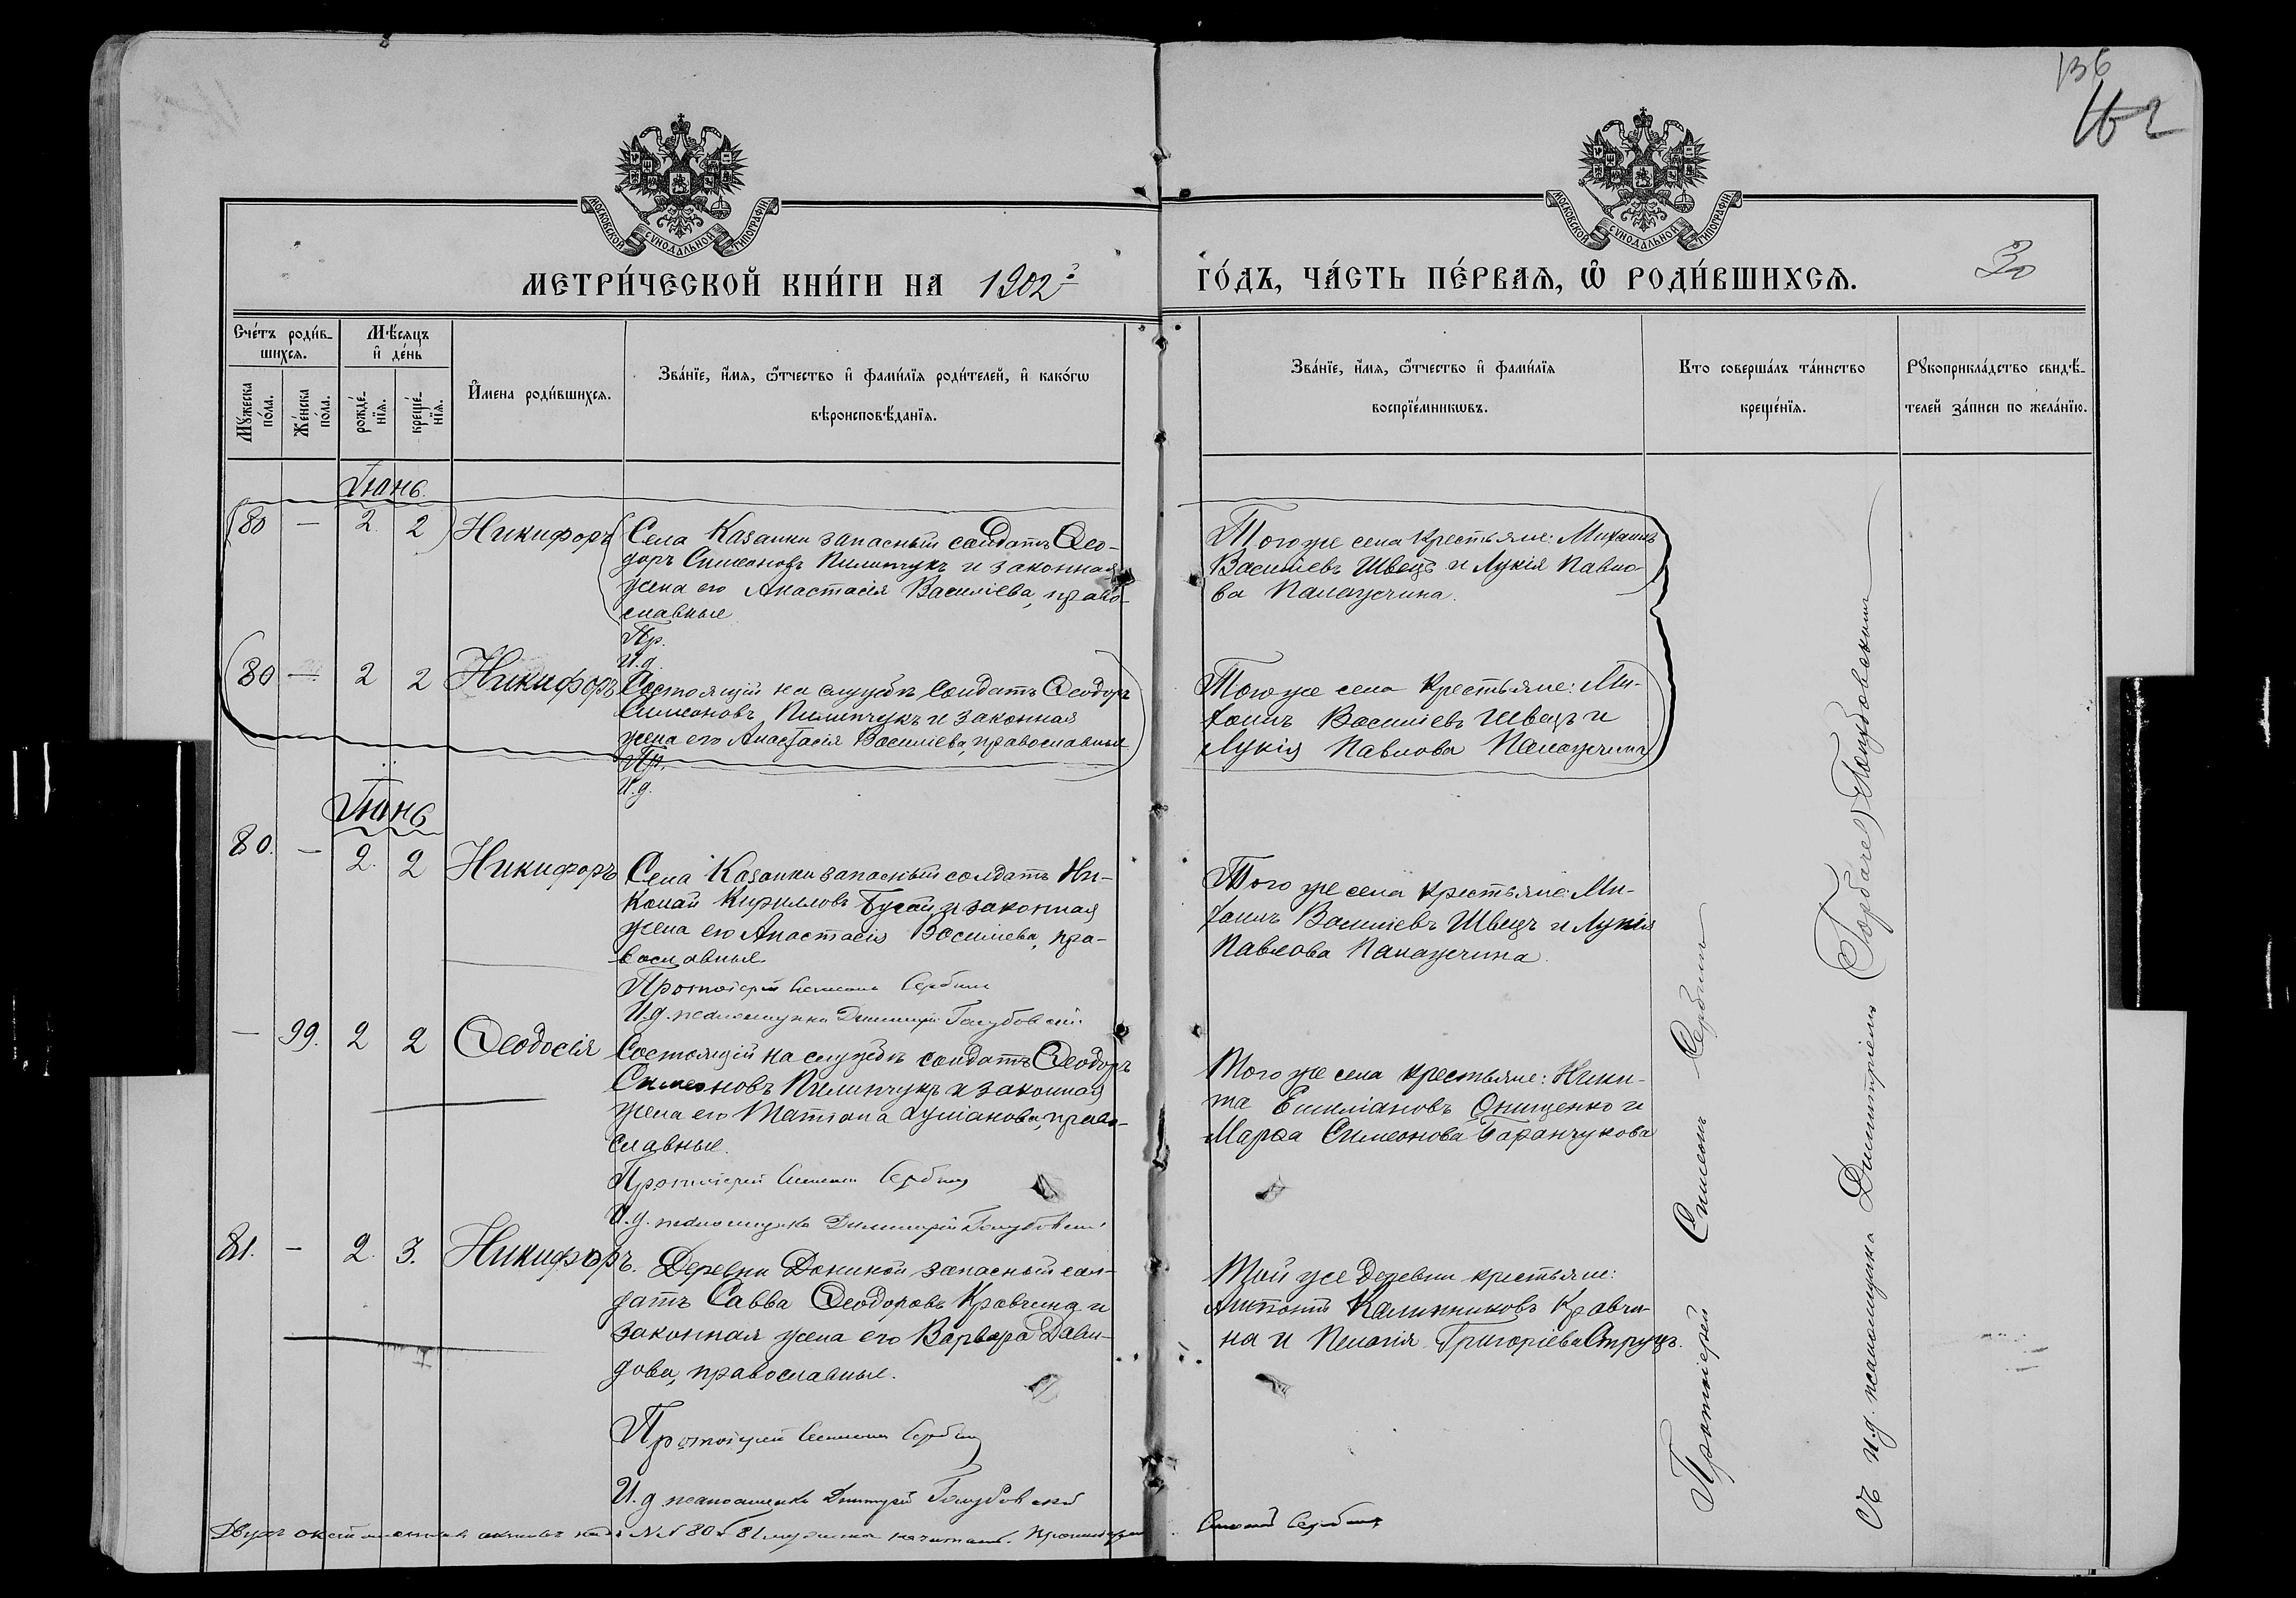 136
162
МОСКОВСКОЙ СѴНОДАЛЬНОЙ ТИПОГРАФІИ
МОСКОВСКОЙ СѴНОДАЛЬНОЙ ТИПОГРАФІИ
МЕТРИ́ЧЕСКОЙ КНИ́ГИ НА 1902 г҃ ГО́ДЪ, ЧА́СТЬ ПЕ́РВАѦ, Ѡ҆ РОДИ́ВШИХСѦ. 30
Сче́тъ роди́в-
шихсѧ.
Мꙋ́жеска по́ла.
Же́нска по́ла.
Мѣ́сѧцъ и҆ де́нь
рожде́-
нїѧ.
креще́-
нїѧ.
И҆мена роди́вшихсѧ.
Зва́нїе, и҆́мѧ, ѻ҆́тчество и҆ фами́лїѧ роди́телей, и҆ како́гѡ
вѣроисповѣ́данїѧ.
Зва́нїе, и҆́мѧ, ѻ҆́тчество и҆ фами́лїѧ
воспрїе́мникѡвъ.
Кто соверша́лъ та́инство
креще́нїѧ.
Рꙋкоприкла́дство свидѣ́-
телей за́писи по жела́нїю.
Іюнь.
80 — 2. 2 Никифоръ
Села Казанки запасный солдатъ Ѳео-
доръ Симеоновъ Пилипчукъ и законная
жена его Анастасія Василіева, право-
славные
Пр.
И.д.
Того же села крестьяне: Михаилъ
Василіевъ Швецъ и Лукія Павло-
ва Паламужина.
80 — 2 2 Никифоръ
Состоящій на службѣ солдатъ Ѳеодоръ
Симеоновъ Пилипчукъ и законная
жена его Анастасія Василіева, православные
Пр.
И.д.
Того же села крестьяне: Ми-
хаилъ Василіевъ Швецъ и
Лукія Павлова
Іюнь
80. — 2. 2 Никифоръ
Села Казанки запасный солдатъ Ни-
колай Кирилловъ Бусай и законная
жена его Анастасія Василіева, пра-
вославные.
Протоіерей Симеонъ Сербинъ
И.д. псаломщика Димитрій Голубовскій
Того же села крестьяне: Ми-
хаилъ Василіевъ Швецъ и Лукія
Павлова
— 99. 2 2 Ѳеодосія
Состоящій на службѣ солдатъ Ѳеодоръ
Симеоновъ Пилипчукъ и законная
жена его Татіана Лукіанова, право-
славные.
Протоіерей Симеонъ Сербинъ
И.д. псаломщика Димитрій Голубовскій
Того же села крестьяне: Ники-
та Емиліановъ Онищенко и
Марѳа Симеонова Баранчукова
81. — 2. 3. Никифоръ.
Деревни Докиной запасный сол-
датъ Савва Ѳеодоровъ Кравчина и
законная жена его Варвара Дави-
дова, православные.
Протоіерей Симеонъ Сербинъ
И.д. псаломщика Димитрій Голубовскій
Той же деревни крестьяне:
Антоній Калинниковъ Кравчи-
на и Пелагія Григоріева Струцъ.
Протоіерей Симеонъ Сербинъ
съ и.д. псаломщика Димитріемъ (Горбаче) Голубовскимъ
Двухъ актовъ подъ №№ 80 и 81 не читать. Протоіерей Симеонъ Сербинъ